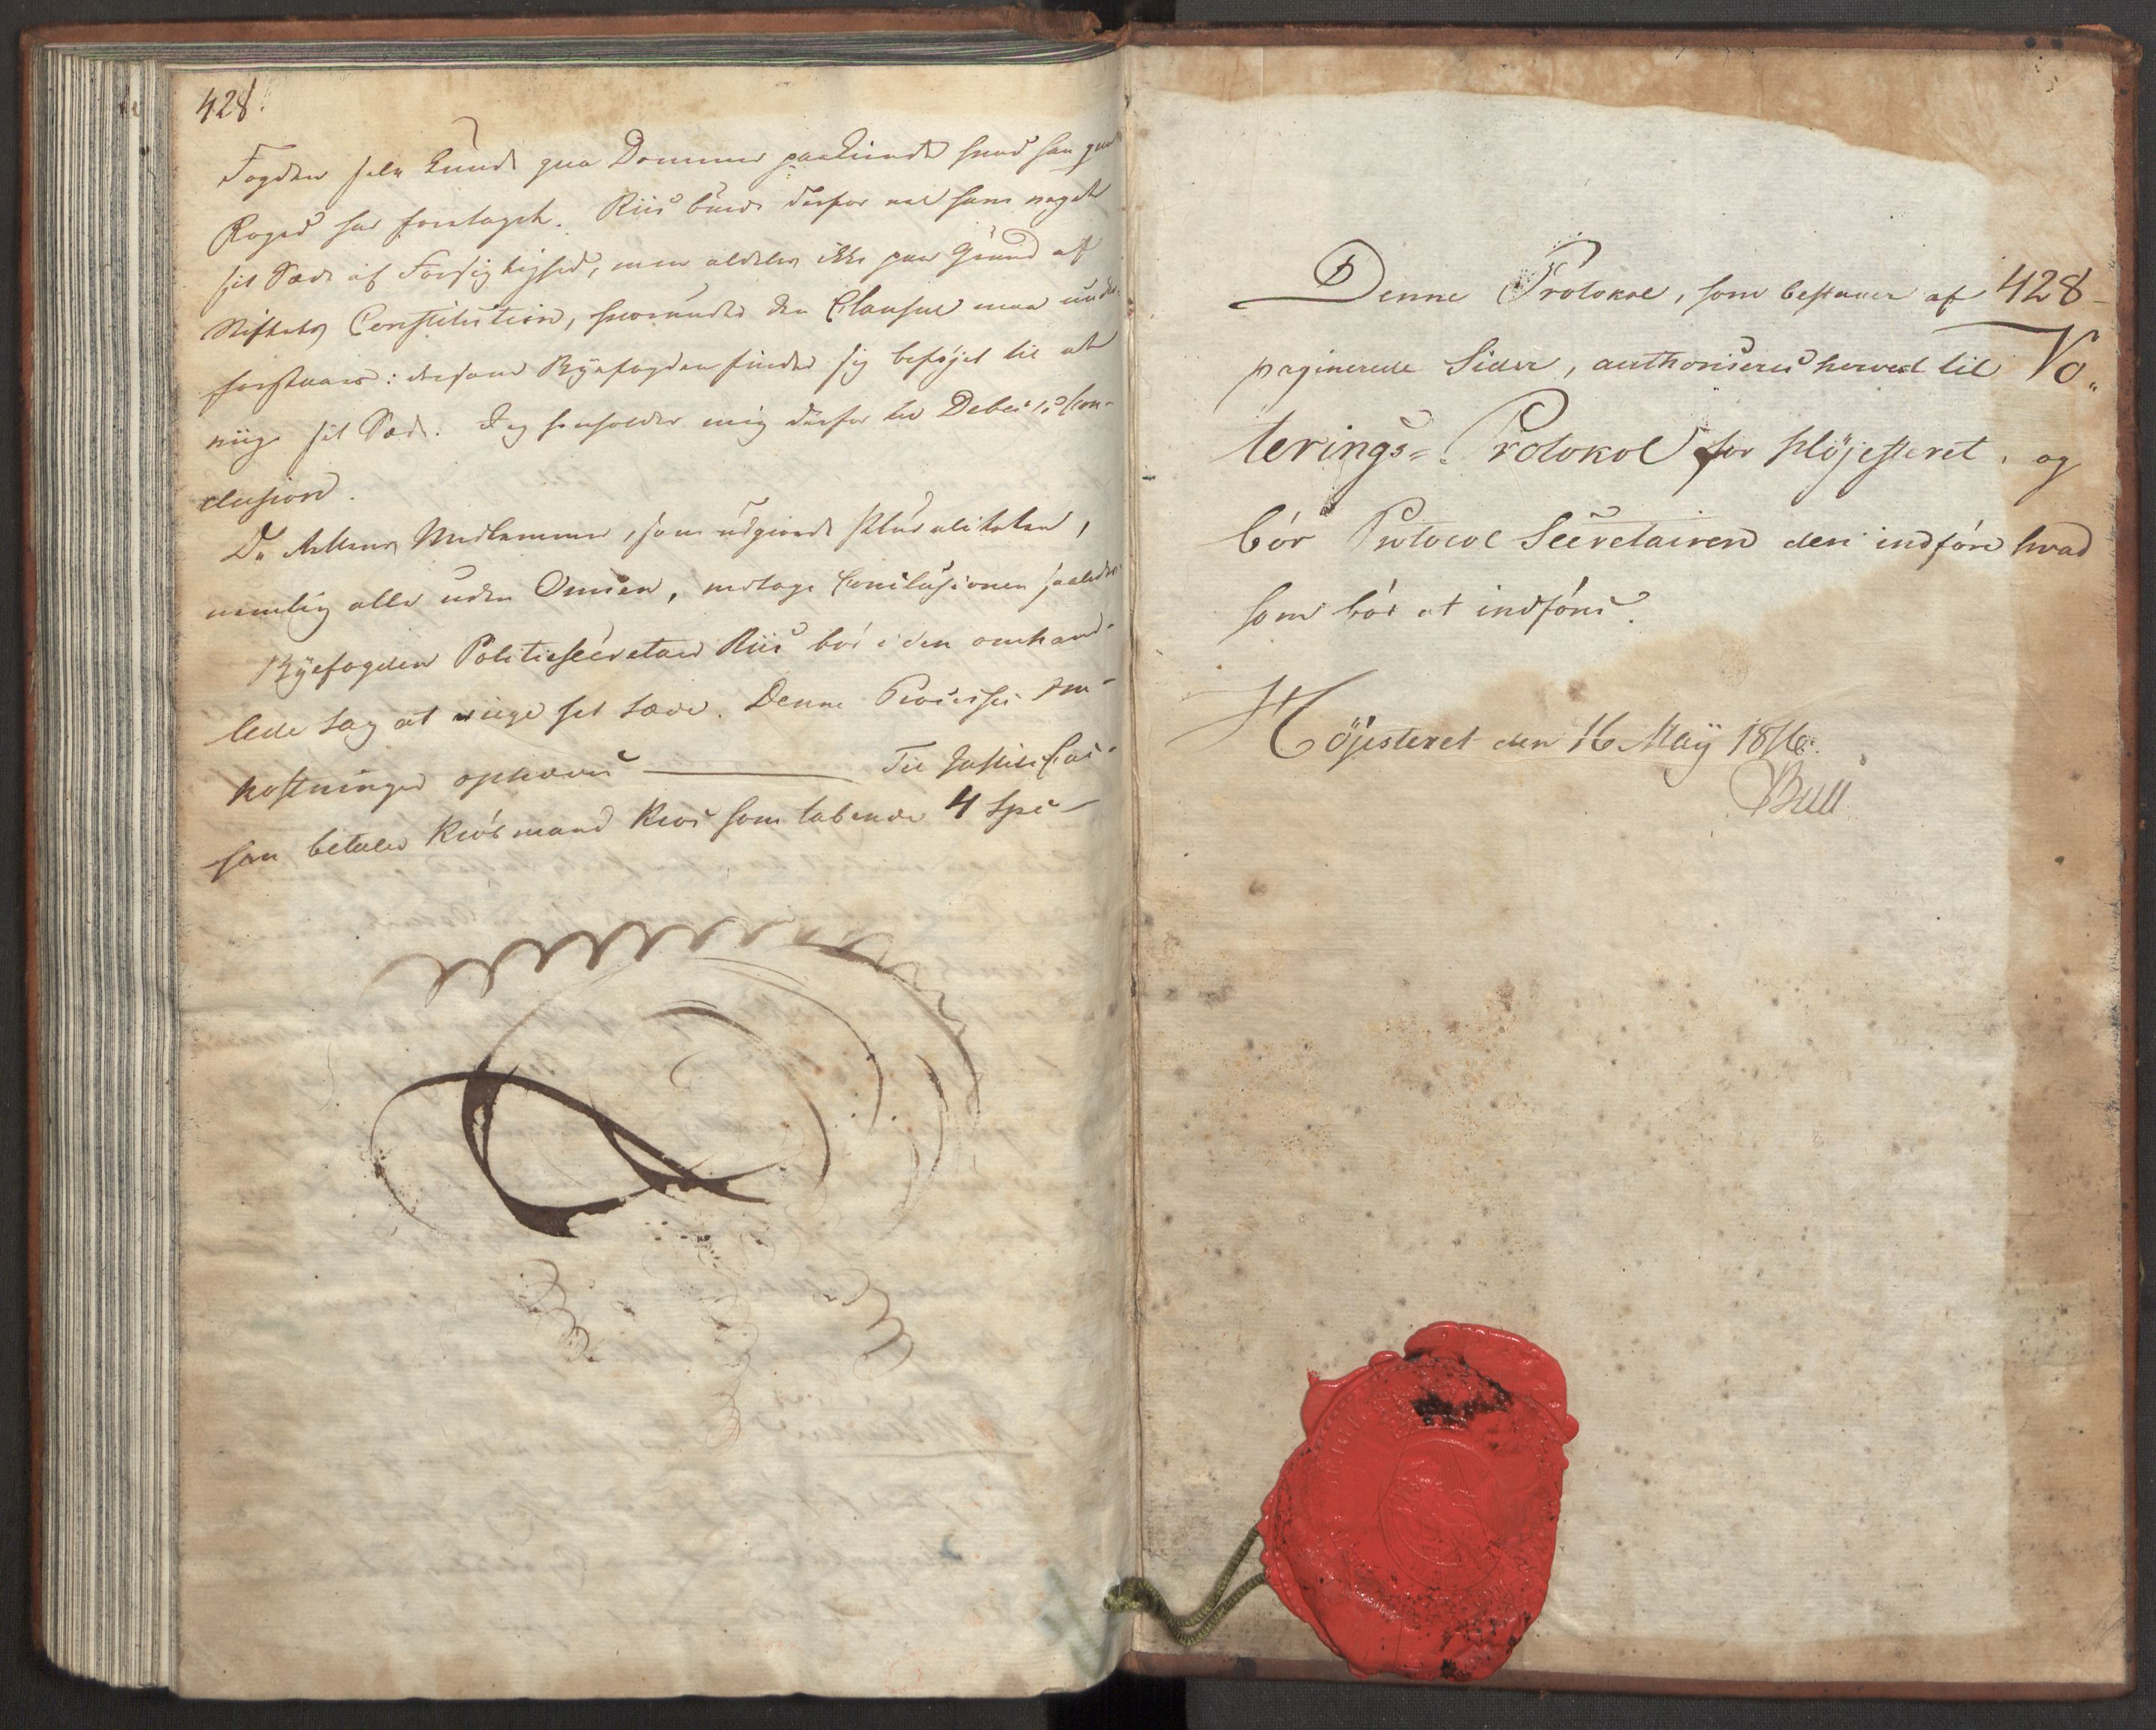 428.
Fogden selv kunde qua Dommer paakiende hvad han qua
Foged har foretaget. Riis burde derfor vel have veget
sit Sæde af Forsigtighed, men aldeles ikke paa Grund af
Stiftets Constitution, hvorunder den Clausul maa under-
forstaaes: dersom Byefogden finder sig beføjet til at
viige sit Sæde. Jeg henholder mig derfor til Debes's Con-
clusion.
De Rettens Medlemmer, som udgiorde Pluraliteten,
nemlig alle uden Omsen, vedtoge Conclusionen saaledes:
Byefogden Politiesecretair Riis bør i den omhand-
lede Sag at viige sit Sæde. Denne Processes Om-
kostninger ophæves ——— Til Justits Cas-
sen betaler Kiøbmand som tabende 4 Spe-
Denne Protokol, som bestaaer af 428
paginerede Sider, authoriseres herved til Vo-
terings=Protokol for Høÿesteret, og
bør Protocol Secretairen deri indføre hvad
som bør at indføres.
Høÿesteret den 16 Maÿ 1816.
Bull